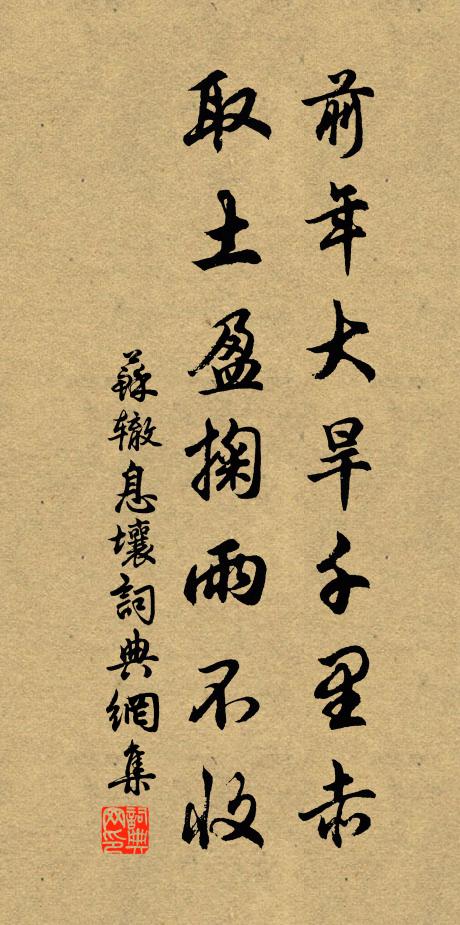 前年大旱千里赤
取土盈掬雨不收
蘇辙息壤詞典網集
詞典
网印